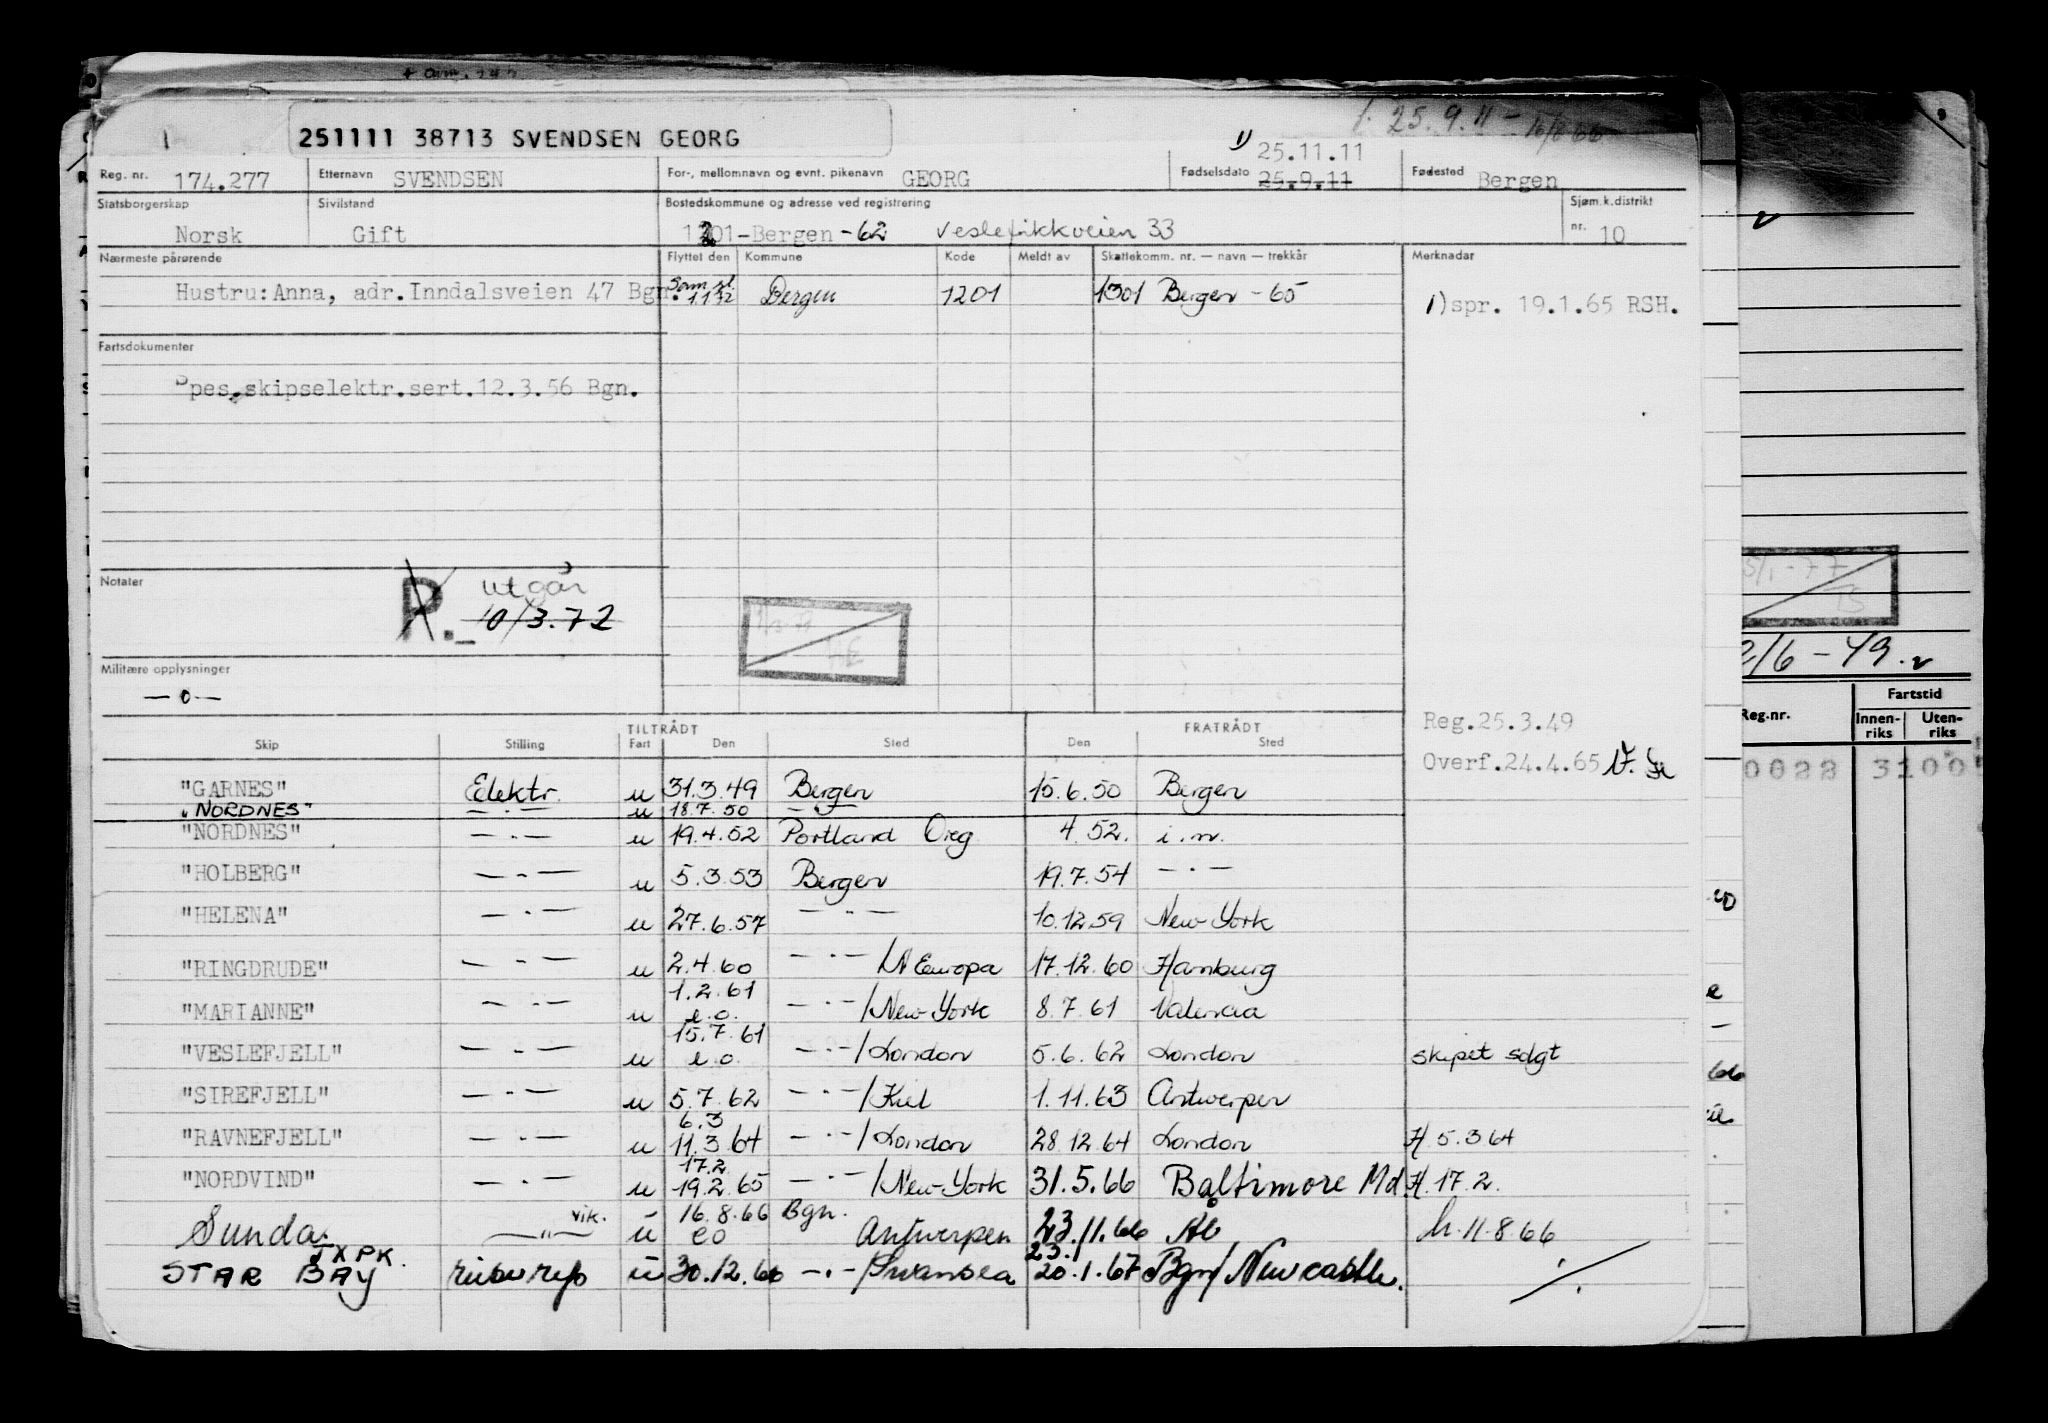 251111 38713 SVENDSEN GEORG
25.9.11 -
Reg. nr. 174.277 Etternavn SVENDSEN For-, mellomnavn og evnt. pikenavn GEORG Fødselsdato 1) 25.11.11 25.9.11 Fødested Bergen
Statsborgerskap Norsk Sivilstand Gift Bostedskommune og adresse ved registrering 1201-Bergen -62 Veslefrikkveien 33 Sjøm.k.distrikt nr. 10
Nærmeste pårørende Flyttet den Kommune Kode Meldt av Skattekomm. nr. — navn — trekkår Merknader
Hustru: Anna, adr. Inndalsveien 47 Bgn. Bergen 1201 1301 Bergen - 65 1) spr. 19.1.65 RSH.
Fartsdokumenter
Spes. skipselektr.sert.12.3.56 Bgn.
Notater R. utgår
10/3.72
Militære opplysninger
— 0 —
Reg.25.3.49
Overf.24.4.65
TILTRÅDT FRATRÅDT
Skip Stilling Fart Den Sted Den Sted
"GARNES" Elektr. u 31.3.49 Bergen 15.6.50 Bergen
"NORDNES" — . — u 18.7.50 — . —
"NORDNES" — . — u 19.4.52 Portland Oreg 4.52. i.m.
"HOLBERG" — . — u 5.3.53 Bergen 19.7.54 — . —
"HELENA" — . — u 27.6.57 — . — 10.12.59 New-York
"RINGDRUDE" — . — u 2.4.60 — . — /N Europa 17.12.60 Hamburg
"MARIANNE" — . — u 1.2.61 e.o. — . — /New-York 8.7.61 Valencia
"VESLEFJELL" — . — u 15.7.61 e.o. — . — /London 5.6.62 London skipet solgt
"SIREFJELL" — . — u 5.7.62 — . — /Kiel 1.11.63 Antwerpen
"RAVNEFJELL" — . — u 6.3 11.3.64 — . — /London 28.12.64 London H. 5.3.64
"NORDVIND" — . — u 17.2 19.2.65 — . — /New-York 31.5.66 Baltimore Md. H. 17.2.
Sunda. — " — vik. u 16.8.66 eo Bgn. Antwerpen 23.11.66 h. 11.8.66
STAR BAY JXPK. u 30.12.66 — . — /Swansea 23.1 20.1.67 Bgn/ Newcastle.
2/6 - 49.
Reg.nr. Fartstid
Innenriks Utenriks
0022 3100